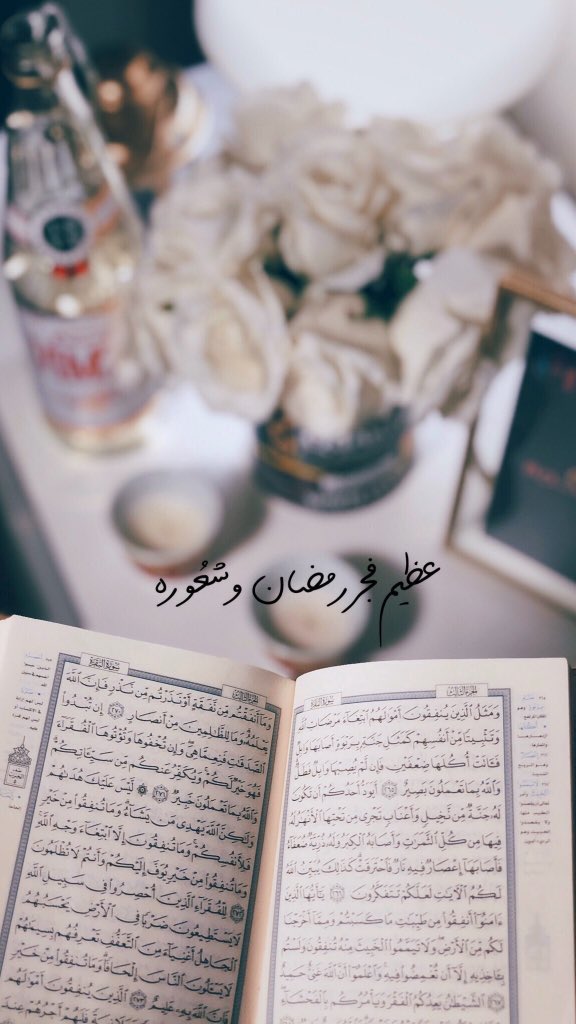 عظيم فجر رمضان وشعُوره
الجزء الثالث
سورة البقرة
وَمَثَلُ ٱلَّذِينَ يُنفِقُونَ أَمْوَٰلَهُمُ ٱبْتِغَآءَ مَرْضَاتِ ٱللَّهِ
وَتَثْبِيتًا مِّنْ أَنفُسِهِمْ كَمَثَلِ جَنَّةٍۭ بِرَبْوَةٍ أَصَابَهَا وَابِلٌ
فَـَٔاتَتْ أُكُلَهَا ضِعْفَيْنِ فَإِن لَّمْ يُصِبْهَا وَابِلٌ فَطَلٌّ
وَٱللَّهُ بِمَا تَعْمَلُونَ بَصِيرٌ ٢٦٥ أَيَوَدُّ أَحَدُكُمْ أَن تَكُونَ
لَهُۥ جَنَّةٌ مِّن نَّخِيلٍ وَأَعْنَابٍ تَجْرِى مِن تَحْتِهَا ٱلْأَنْهَٰرُ لَهُۥ
فِيهَا مِن كُلِّ ٱلثَّمَرَٰتِ وَأَصَابَهُ ٱلْكِبَرُ وَلَهُۥ ذُرِّيَّةٌ ضُعَفَآءُ
فَأَصَابَهَآ إِعْصَارٌ فِيهِ نَارٌ فَٱحْتَرَقَتْ كَذَٰلِكَ يُبَيِّنُ ٱللَّهُ
لَكُمُ ٱلْـَٔايَٰتِ لَعَلَّكُمْ تَتَفَكَّرُونَ ٢٦٦ يَٰٓأَيُّهَا ٱلَّذِينَ
ءَامَنُوٓا۟ أَنفِقُوا۟ مِن طَيِّبَٰتِ مَا كَسَبْتُمْ وَمِمَّآ أَخْرَجْنَا
لَكُم مِّنَ ٱلْأَرْضِ وَلَا تَيَمَّمُوا۟ ٱلْخَبِيثَ مِنْهُ تُنفِقُونَ وَلَسْتُم
بِـَٔاخِذِيهِ إِلَّآ أَن تُغْمِضُوا۟ فِيهِ وَٱعْلَمُوٓا۟ أَنَّ ٱللَّهَ غَنِىٌّ حَمِيدٌ
٢٦٧ ٱلشَّيْطَٰنُ يَعِدُكُمُ ٱلْفَقْرَ وَيَأْمُرُكُم بِٱلْفَحْشَآءِ
الجزء الثالث
سورة البقرة
وَمَآ أَنفَقْتُم مِّن نَّفَقَةٍ أَوْ نَذَرْتُم مِّن نَّذْرٍ فَإِنَّ ٱللَّهَ
يَعْلَمُهُۥ وَمَا لِلظَّٰلِمِينَ مِنْ أَنصَارٍ ٢٧٠ إِن تُبْدُوا۟
ٱلصَّدَقَٰتِ فَنِعِمَّا هِىَ وَإِن تُخْفُوهَا وَتُؤْتُوهَا ٱلْفُقَرَآءَ
فَهُوَ خَيْرٌ لَّكُمْ وَيُكَفِّرُ عَنكُم مِّن سَيِّـَٔاتِكُمْ
وَٱللَّهُ بِمَا تَعْمَلُونَ خَبِيرٌ ٢٧١ لَّيْسَ عَلَيْكَ هُدَىٰهُمْ
وَلَٰكِنَّ ٱللَّهَ يَهْدِى مَن يَشَآءُ وَمَا تُنفِقُوا۟ مِنْ خَيْرٍ
فَلِأَنفُسِكُمْ وَمَا تُنفِقُونَ إِلَّا ٱبْتِغَآءَ وَجْهِ ٱللَّهِ
وَمَا تُنفِقُوا۟ مِنْ خَيْرٍ يُوَفَّ إِلَيْكُمْ وَأَنتُمْ لَا تُظْلَمُونَ
٢٧٢ لِلْفُقَرَآءِ ٱلَّذِينَ أُحْصِرُوا۟ فِى سَبِيلِ ٱللَّهِ
لَا يَسْتَطِيعُونَ ضَرْبًا فِى ٱلْأَرْضِ يَحْسَبُهُمُ
ٱلْجَاهِلُ أَغْنِيَآءَ مِنَ ٱلتَّعَفُّفِ تَعْرِفُهُم بِسِيمَٰهُمْ
لَا يَسْـَٔلُونَ ٱلنَّاسَ إِلْحَافًا وَمَا تُنفِقُوا۟ مِنْ خَيْرٍ
فَإِنَّ ٱللَّهَ بِهِۦ عَلِيمٌ ٢٧٣ ٱلَّذِينَ يُنفِقُونَ أَمْوَٰلَهُم